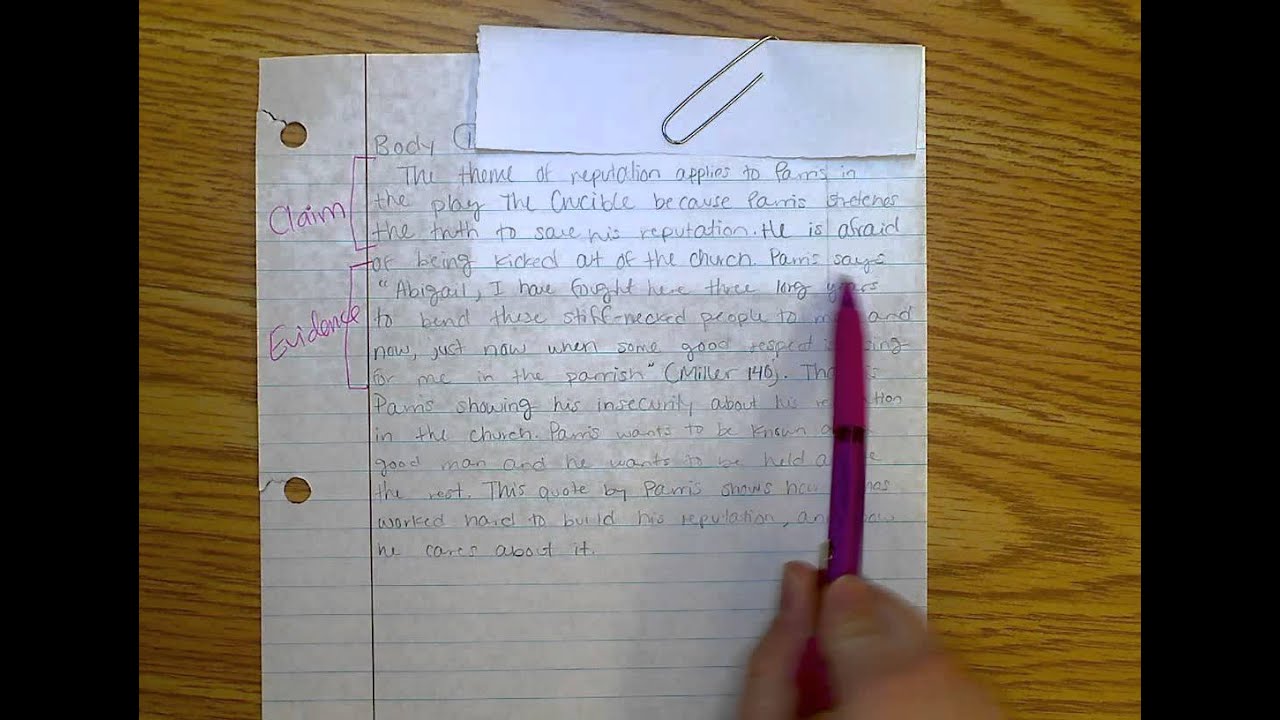 Body 1
The theme of reputation applies to Parris in
Claim
the play The Crucible because Parris stretches
the truth to save his reputation. He is afraid
of being kicked out of the church. Parris says
"Abigail, I have fought here three long years
Evidence
to bend these stiff-necked people to and
now, just now when some good respect
for me in the parrish" (Miller 140).
Parris showing his insecurity about his
in the church. Parris wants to be known
good man and he wants to be held
the rest. This quote by Parris shows has
worked hard to build his reputation, and
he cares about it.